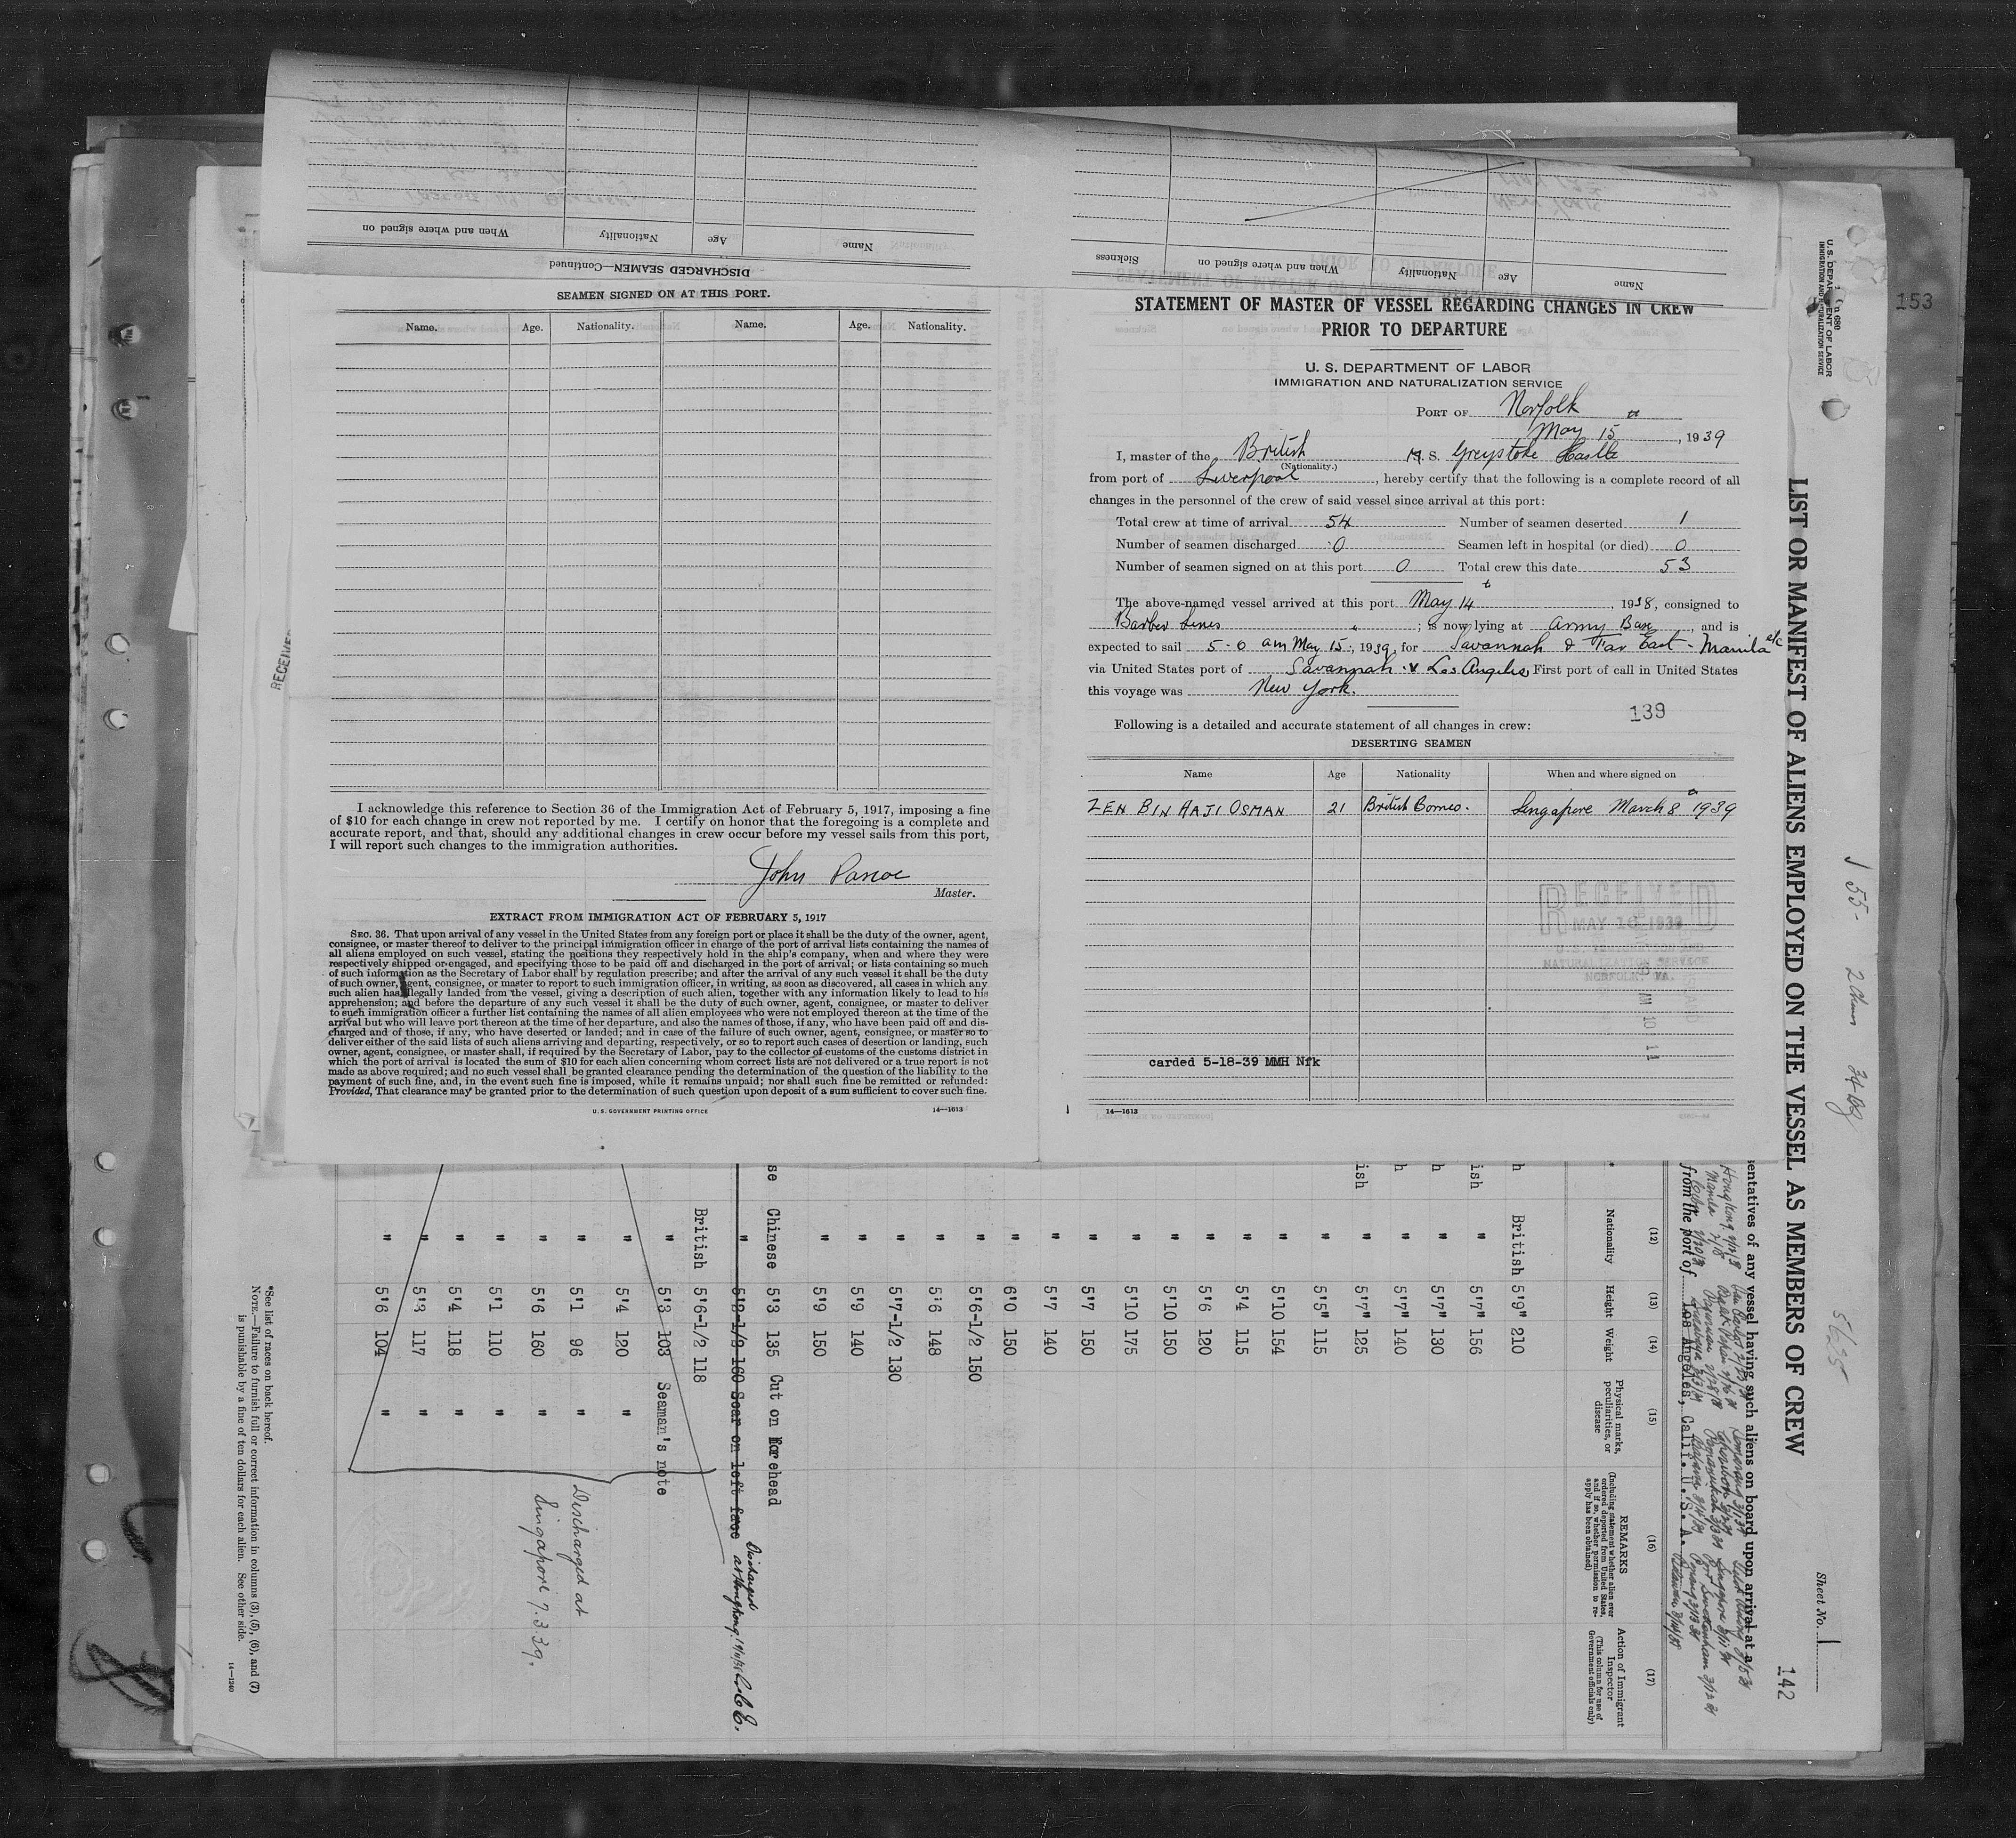 DISCHARGED SEAMEN—Continued
Name Age Nationality When and where signed on
Name Age Nationality When and where signed on Sickness
SEAMEN SIGNED ON AT THIS PORT.
Name. Age. Nationality. Name. Age. Nationality.
I acknowledge this reference to Section 36 of the Immigration Act of February 5, 1917, imposing a fine
of $10 for each change in crew not reported by me. I certify on honor that the foregoing is a complete and
accurate report, and that, should any additional changes in crew occur before my vessel sails from this port,
I will report such changes to the immigration authorities.
John Pascoe
Master.
EXTRACT FROM IMMIGRATION ACT OF FEBRUARY 5, 1917
SEC. 36. That upon arrival of any vessel in the United States from any foreign port or place it shall be the duty of the owner, agent,
consignee, or master thereof to deliver to the principal immigration officer in charge of the port of arrival lists containing the names of
all aliens employed on such vessel, stating the positions they respectively hold in the ship's company, when and where they were
respectively shipped or engaged, and specifying those to be paid off and discharged in the port of arrival; or lists containing so much
of such information as the Secretary of Labor shall by regulation prescribe; and after the arrival of any such vessel it shall be the duty
of such owner, agent, consignee, or master to report to such immigration officer, in writing, as soon as discovered, all cases in which any
such alien has illegally landed from the vessel, giving a description of such alien, together with any information likely to lead to his
apprehension; and before the departure of any such vessel it shall be the duty of such owner, agent, consignee, or master to deliver
to such immigration officer a further list containing the names of all alien employees who were not employed thereon at the time of the
arrival but who will leave port thereon at the time of her departure, and also the names of those, if any, who have been paid off and dis-
charged and of those, if any, who have deserted or landed; and in case of the failure of such owner, agent, consignee, or master so to
deliver either of the said lists of such aliens arriving and departing, respectively, or so to report such cases of desertion or landing, such
owner, agent, consignee, or master shall, if required by the Secretary of Labor, pay to the collector of customs of the customs district in
which the port of arrival is located the sum of $10 for each alien concerning whom correct lists are not delivered or a true report is not
made as above required; and no such vessel shall be granted clearance pending the determination of the question of the liability to the
payment of such fine, and, in the event such fine is imposed, while it remains unpaid; nor shall such fine be remitted or refunded:
Provided, That clearance may be granted prior to the determination of such question upon deposit of a sum sufficient to cover such fine.
U. S. GOVERNMENT PRINTING OFFICE 14—1613
STATEMENT OF MASTER OF VESSEL REGARDING CHANGES IN CREW
PRIOR TO DEPARTURE
U. S. DEPARTMENT OF LABOR
IMMIGRATION AND NATURALIZATION SERVICE
PORT OF Norfolk
May 15, 1939
I, master of the British M. S. Greystoke Castle
(Nationality.)
from port of Liverpool, hereby certify that the following is a complete record of all
changes in the personnel of the crew of said vessel since arrival at this port:
Total crew at time of arrival 54 Number of seamen deserted 1
Number of seamen discharged 0 Seamen left in hospital (or died) 0
Number of seamen signed on at this port 0 Total crew this date 53
The above-named vessel arrived at this port May 14, 1938, consigned to
Barber Lines; is now lying at Army Base, and is
expected to sail 5-0 am May 15, 1939, for Savannah & Far East - Manila etc
via United States port of Savannah v Los Angeles First port of call in United States
this voyage was New York.
139
Following is a detailed and accurate statement of all changes in crew:
DESERTING SEAMEN
Name Age Nationality When and where signed on
ZEN BIN HAJI OSMAN 21 British Borneo. Singapore March 8 1939
RECEIVED
MAY 16 1939
U.S. IMMIGRATION AND
NATURALIZATION SERVICE
NORFOLK, VA.
AM 10 11
carded 5-18-39 MMH Nfk
14—1613
RECEIVED
153
U. S. DEPARTMENT OF LABOR
IMMIGRATION AND NATURALIZATION SERVICE
LIST OR MANIFEST OF ALIENS EMPLOYED ON THE VESSEL AS MEMBERS OF CREW
Sheet No. 1
142
sentatives of any vessel having such aliens on board upon arrival at a
from the port of Los Angeles, Calif. U.S.A.
(12) (13) (14) (15) (16) (17)
Nationality Height Weight Physical marks, peculiarities, or disease REMARKS Action of Immigrant Inspector
(Including statement whether alien ever ordered deported from United States, and if so, whether permission to re-apply has been obtained)
(This column for use of Government officials only)
British 5'9" 210
" 5'7" 156
" 5'7" 130
" 5'7" 140
" 5'7" 125
" 5'5" 115
" 5'10 154
" 5'4 115
" 5'6 120
" 5'10 150
" 5'10 175
" 5'7 150
" 5'7 140
" 6'0 150
" 5'6-1/2 150
" 5'6 148
" 5'7-1/2 130
" 5'9 140
" 5'9 150
Chinese 5'3 135 Cut on Forehead
" 5'2-1/2 160 Scar on left face Discharged at Hongkong
British 5'6-1/2 118
" 5'3 103 Seaman's note
" 5'4 120 "
" 5'1 96 Discharged at
" 5'6 160 " Singapore 7.3.39.
" 5'1 110
" 5'4 118 "
" 5'3 117 "
" 5'6 104 "
*See list of races on back hereof.
NOTE.—Failure to furnish full or correct information in columns (3), (5), (6), and (7)
is punishable by a fine of ten dollars for each alien. See other side.
14—1240